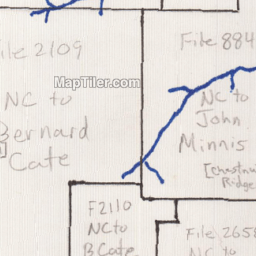 File 2109
NC to
Bernard
Cate
MapTiler.com
File 884
NC to
John
Minnis
[Chestnut
Ridge
F2110
NC to
B Cate
File 265
NC to